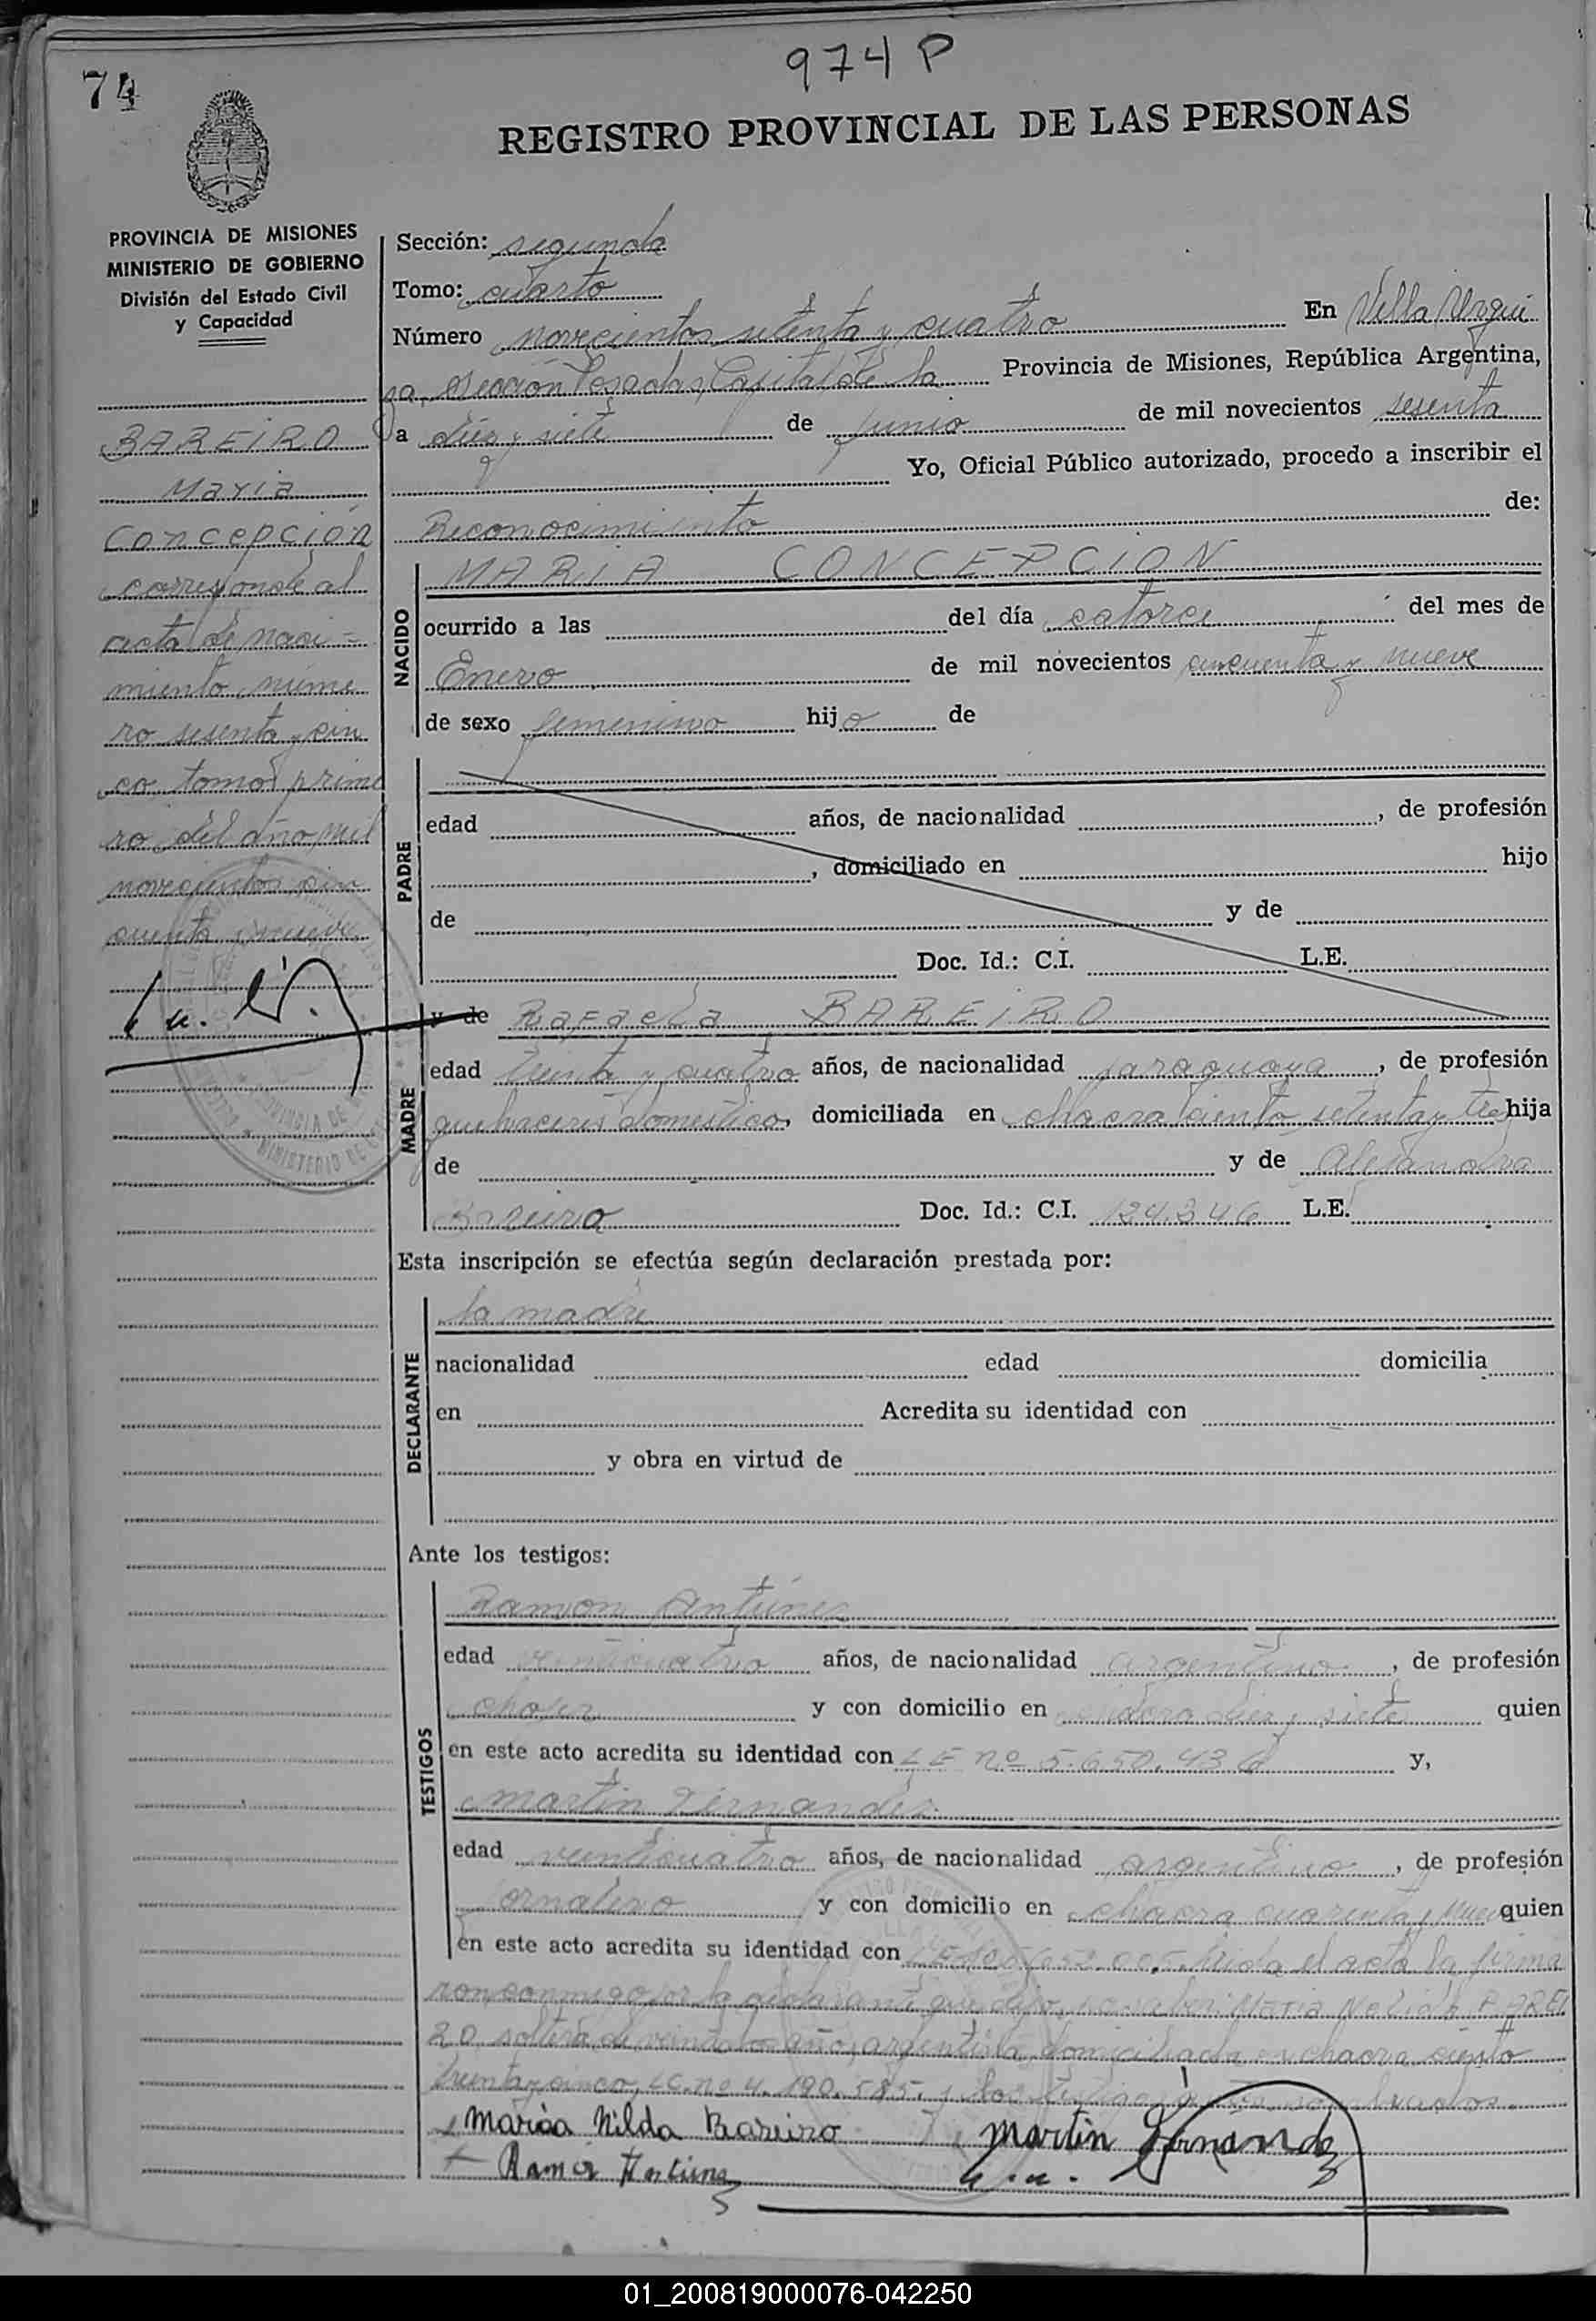 974 P
74
REGISTRO PROVINCIAL DE LAS PERSONAS
PROVINCIA DE MISIONES
MINISTERIO DE GOBIERNO
División del Estado Civil
y Capacidad
BAREIRO
Maria
Concepción
corresponde al
acta de naci=
miento núme
ro sesenta y cin
co tomo prime
ro del año mil
novecientos cin
cuenta y nueve
Sección: segunda
Tomo: cuarto
Número novecientos setenta y cuatro En Villa Urqui
za, Sección Posadas, Capital de la Provincia de Misiones, República Argentina,
a diez y siete de Junio de mil novecientos sesenta
Yo, Oficial Público autorizado, procedo a inscribir el
Reconocimiento de:
NACIDO
MARIA CONCEPCION
ocurrido a las del día catorce del mes de
Enero de mil novecientos cincuenta y nueve
de sexo femenino hijo de
PADRE
edad años, de nacionalidad , de profesión
, domiciliado en hijo
de y de
Doc. Id.: C.I. L.E.
MADRE
y de Rafaela BAREIRO
edad treinta y cuatro años, de nacionalidad paraguaya, de profesión
quehaceres domestico, domiciliada en chacra ciento setenta y tres hija
de y de Alejandra
Bareiro Doc. Id.: C.I. 124.346 L.E.
Esta inscripción se efectúa según declaración prestada por:
DECLARANTE
la madre
nacionalidad edad domicilia
en Acredita su identidad con
y obra en virtud de
Ante los testigos:
TESTIGOS
Ramon Antúnez
edad veinticuatro años, de nacionalidad argentino, de profesión
chofer y con domicilio en diez y siete quien
en este acto acredita su identidad con LE nº 5.650.436 y,
Martin Fernandez
edad veinticuatro años, de nacionalidad argentino, de profesión
Jornalero y con domicilio en chacra cuarenta y nueve quien
en este acto acredita su identidad con leida el acta la firma
ron conmigo por la declarante que dijo no saber Maria Nelida BAREI
RO soltera de veintidos años, argentina domiciliada en chacra ciento
treinta y cinco, LC. nº 4.190.585. y los testigos nombrados.
Maria Nilda Bareiro Martin Fernandez
Ramon Antunez
01_200819000076-042250